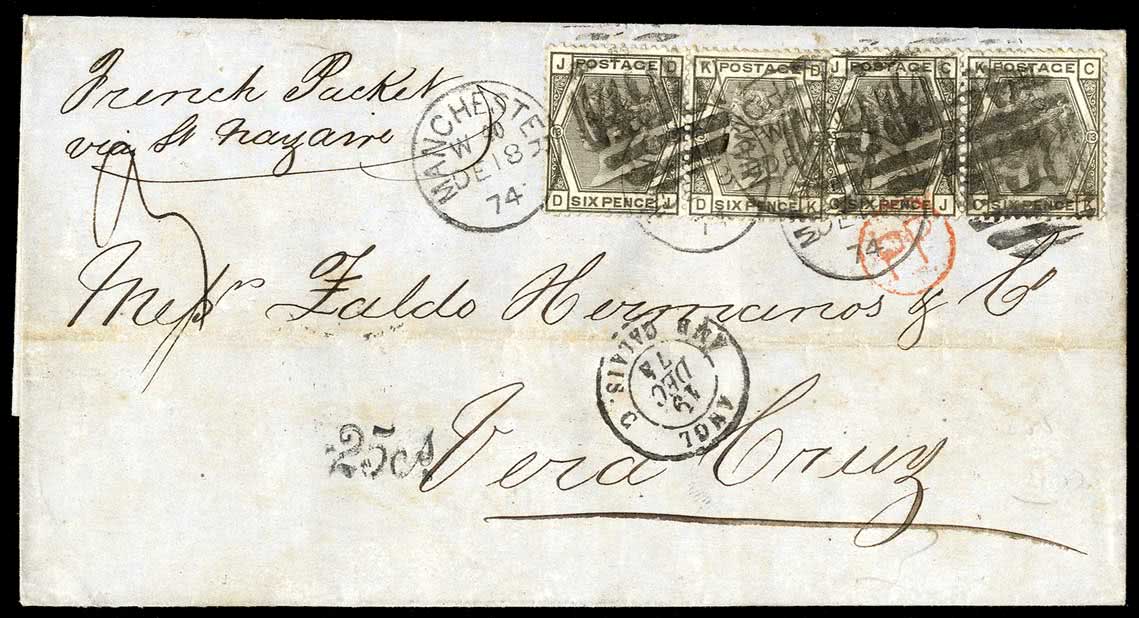 French Packet
via St Nazaire
MANCHESTER
W 90
DE 18
74
J POSTAGE D
D SIX PENCE J
K POSTAGE D
D SIX PENCE K
J POSTAGE C
C SIX PENCE J
K POSTAGE C
C SIX PENCE K
MANCH
DE
74
PP
Messrs Zaldo Hermanos & Co
ANGL
AMB CALAIS. C
19
DEC
74
25cs
Vera Cruz